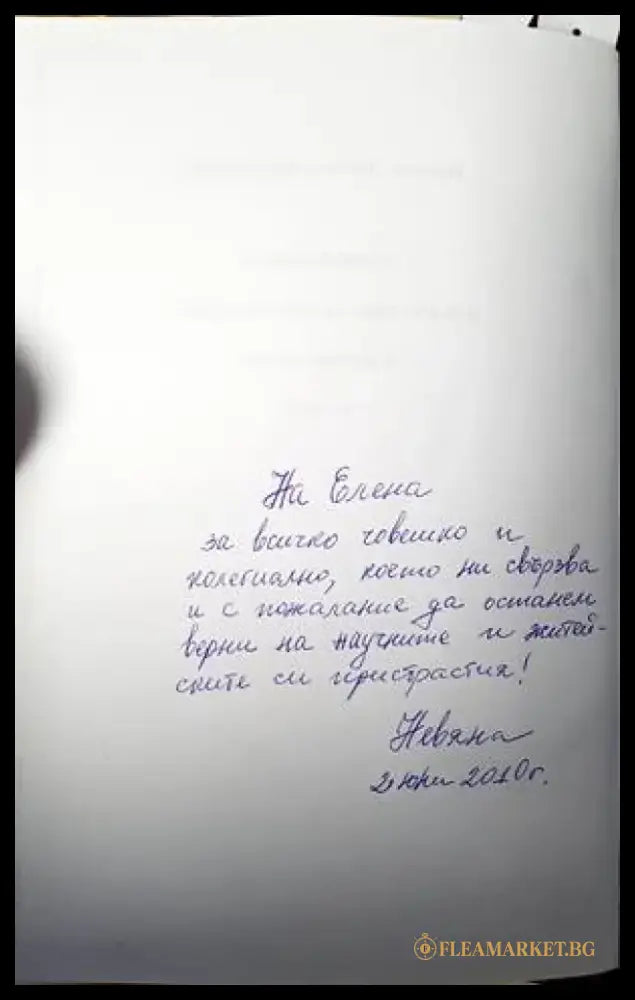 На Елена
за всичко човешко и
колегиално, което ни свързва
и с пожелание да останем
верни на научните и житей-
ските си пристрастия!
Невяна
2 юни 2010 г.
FLEAMARKET.BG